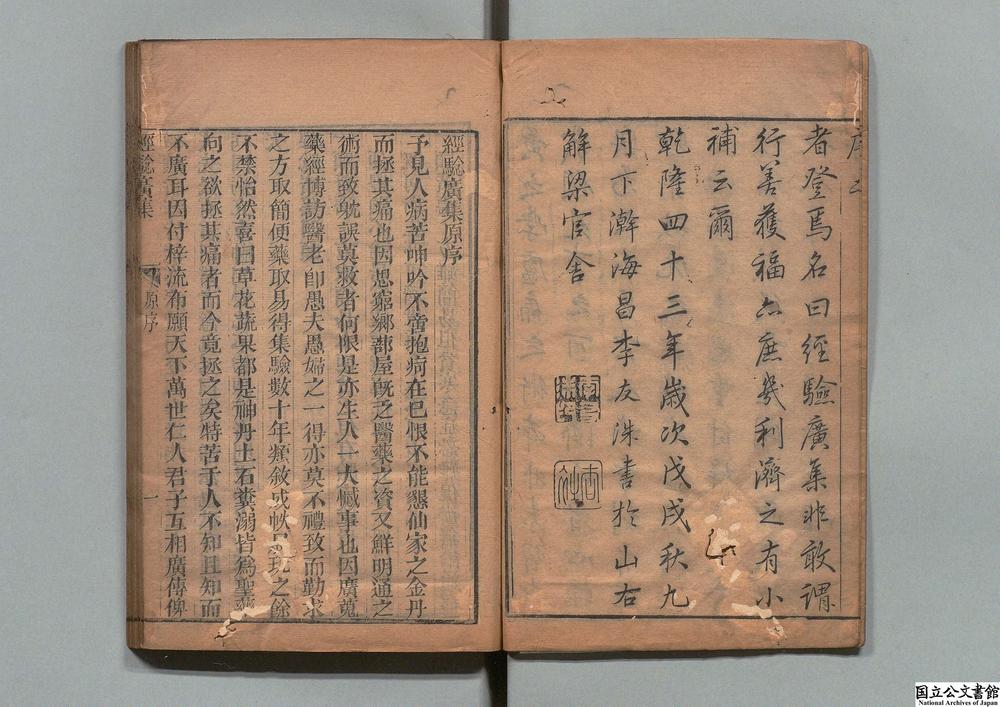 序
者登焉名曰經驗廣集非敢謂
行善獲福亦庶幾利濟之有小
補云爾
乾隆四十三年歲次戊戌秋九
月下澣海昌李友洙書於山右
解梁官舍
經驗廣集原序
予見人病苦呻吟不啻抱疴在已恨不能懇仙家之金丹
而拯其痛也因思窮鄉蔀屋旣乏醫藥之資又鮮明通之
術而致躭誤莫救者何限是亦生人一大憾事也因廣蒐
藥經博訪醫老卽愚夫愚婦之一得亦莫不禮致而勤求
之方取簡便藥取易得集驗數十年類敘成帙展玩之餘
不禁怡然喜曰草花蔬果都是神丹土石糞溺皆爲聖藥
向之欲拯其痛者而今竟拯之矣特苦于人不知且知而
不廣耳因付梓流布願天下萬世仁人君子互相廣傳俾
經驗廣集
原序
一
国立公文書館
National Archives of Japan